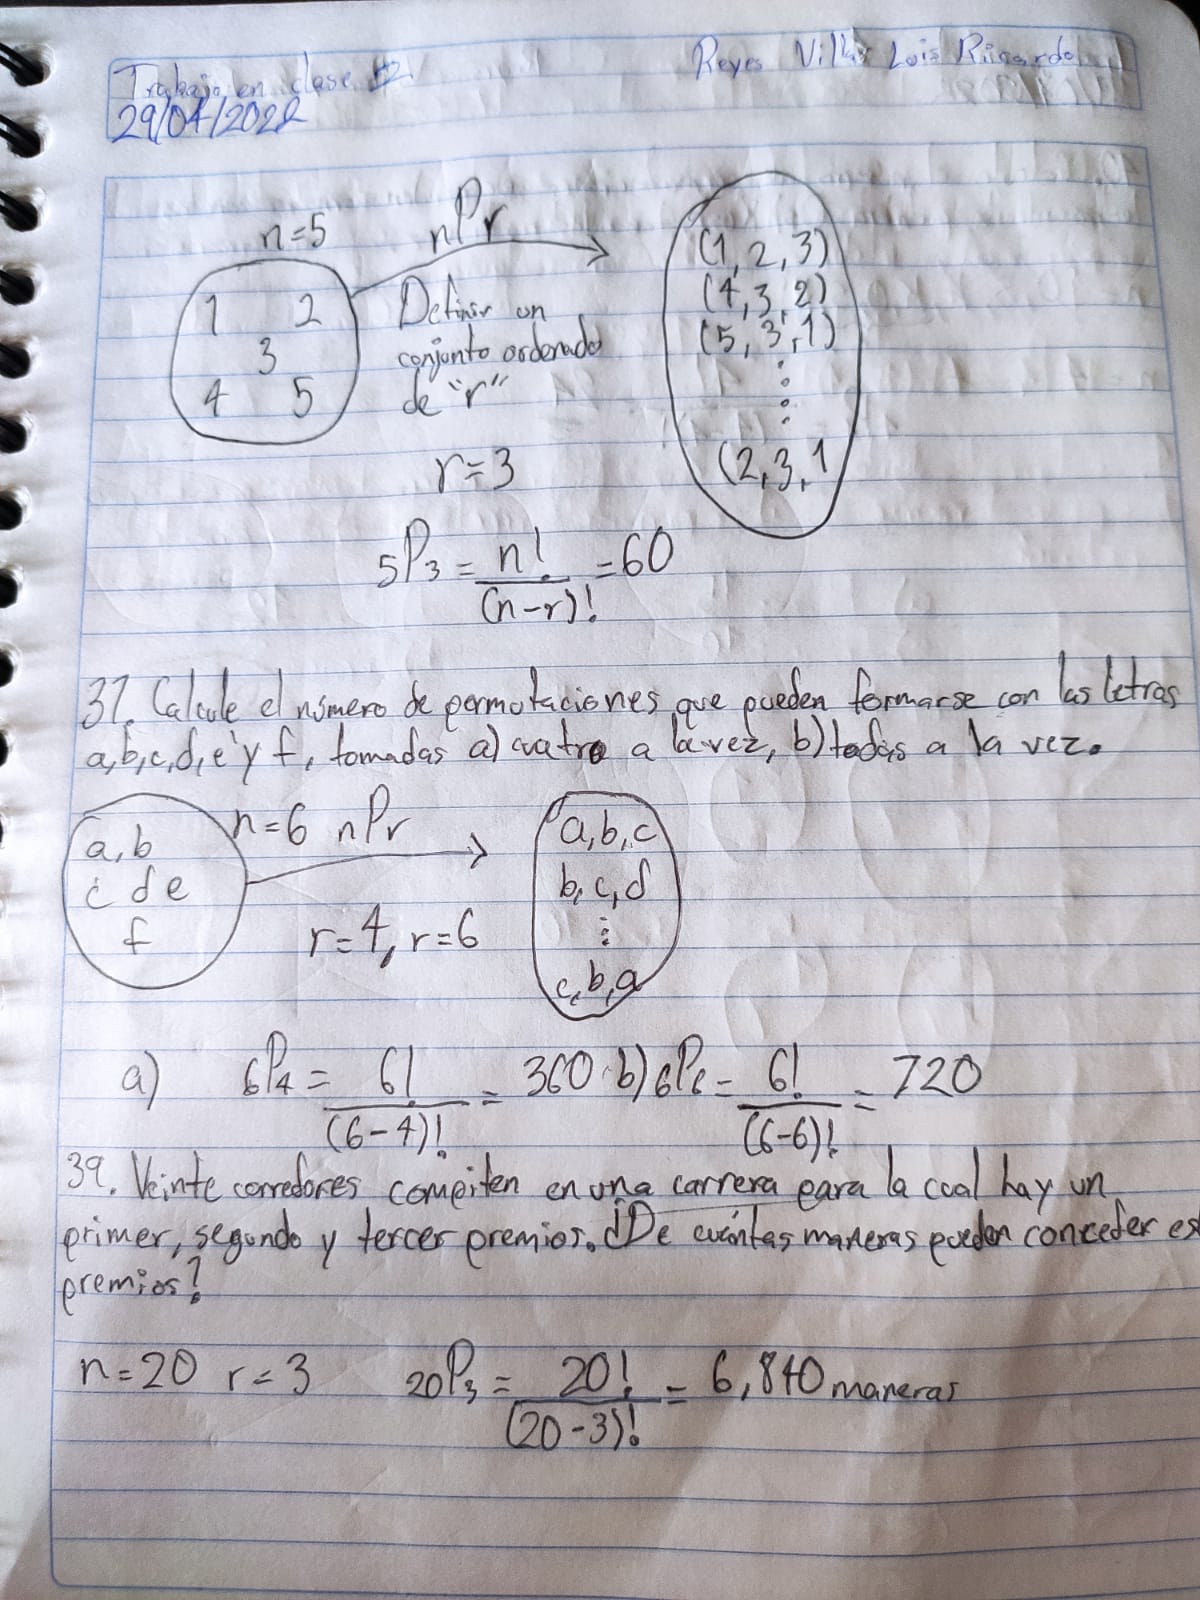 Trabajo en clase 12 Reyes Villar Luis Ricardo
29/04/2022
n=5 nPr
1 2
3
4 5
Definir un
conjunto ordenado
de "r"
r=3
(1,2,3)
(4,3,2)
(5,3,1)
(2,3,1
5P3 = n! = 60
(n-r)!
37. Calcule el número de permutaciones que pueden formarse con las letras
a,b,c,d,e y f, tomadas a) cuatro a la vez, b) todas a la vez.
n=6 nPr
a,b
c d e
f
r=4, r=6
a,b,c
b,c,d
c,b,a
a) 6P4 = 6! = 360 b) 6P6 = 6! = 720
(6-4)! (6-6)!
39. Veinte corredores compiten en una carrera para la cual hay un
primer, segundo y tercer premios. ¿De cuántas maneras pueden conceder es
premios?
n=20 r=3 20P3 = 20! = 6,840 maneras
(20-3)!